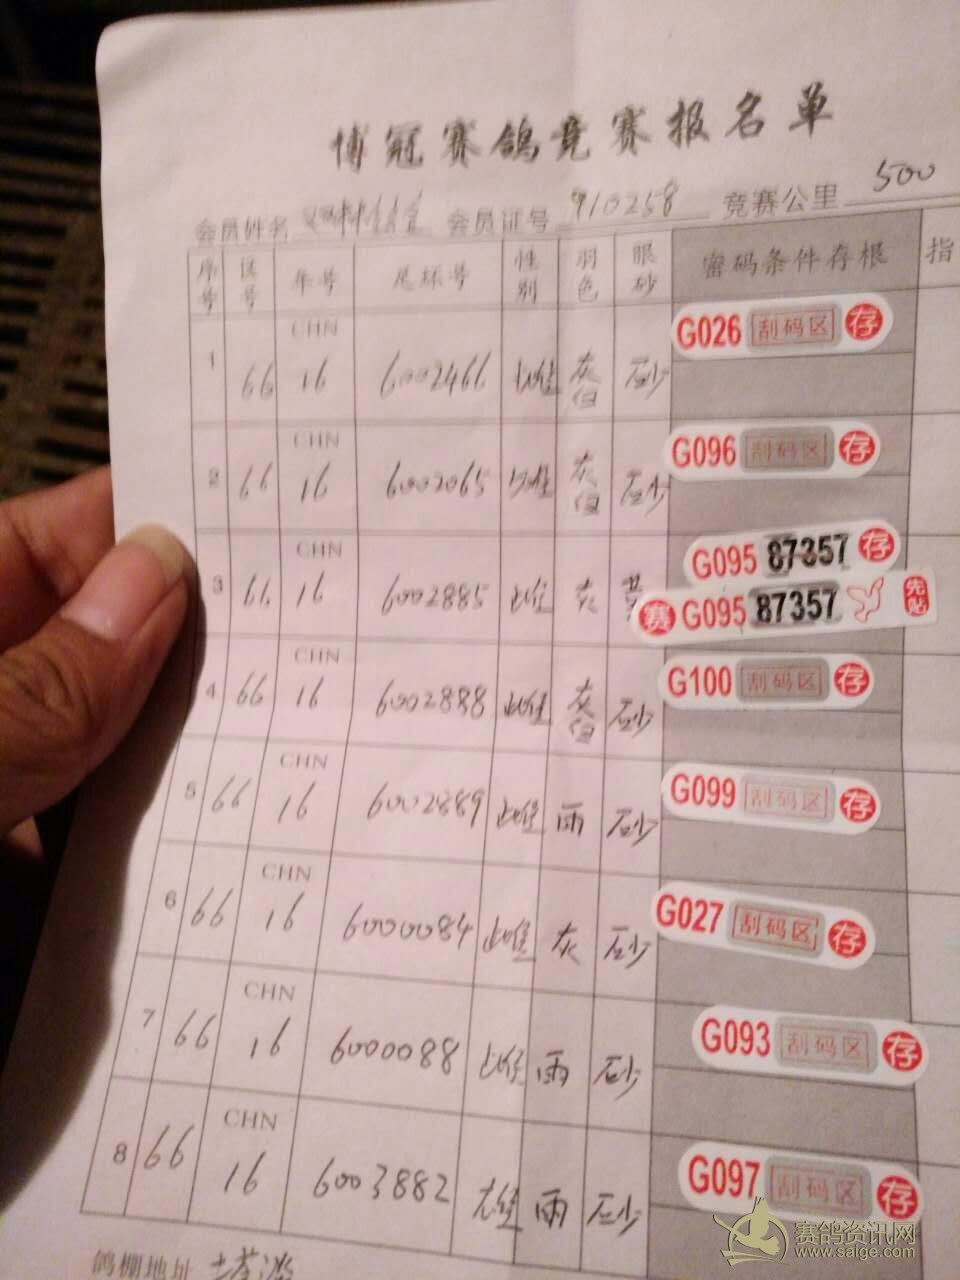 博冠赛鸽竞赛报名单
会员姓名 会员证号 910258 竞赛公里 500
序号 区号 年号 足环号 性别 羽色 眼砂 密码条件存根 指
1 66 CHN 16 6002466 雌 灰白 砂 G026 刮码区 存
2 66 CHN 16 6002065 雌 灰白 砂 G096 刮码区 存
3 66 CHN 16 6002885 雌 灰 黄 G095 87357 存
赛 G095 87357 先贴
4 66 CHN 16 6002888 雌 灰白 砂 G100 刮码区 存
5 66 CHN 16 6002889 雌 雨 砂 G099 刮码区 存
6 66 CHN 16 6000084 雌 灰 砂 G027 刮码区 存
7 66 CHN 16 6000088 雌 雨 砂 G093 刮码区 存
8 66 CHN 16 6003882 雄 雨 砂 G097 刮码区 存
鸽棚地址
赛鸽资讯网
www.saige.com